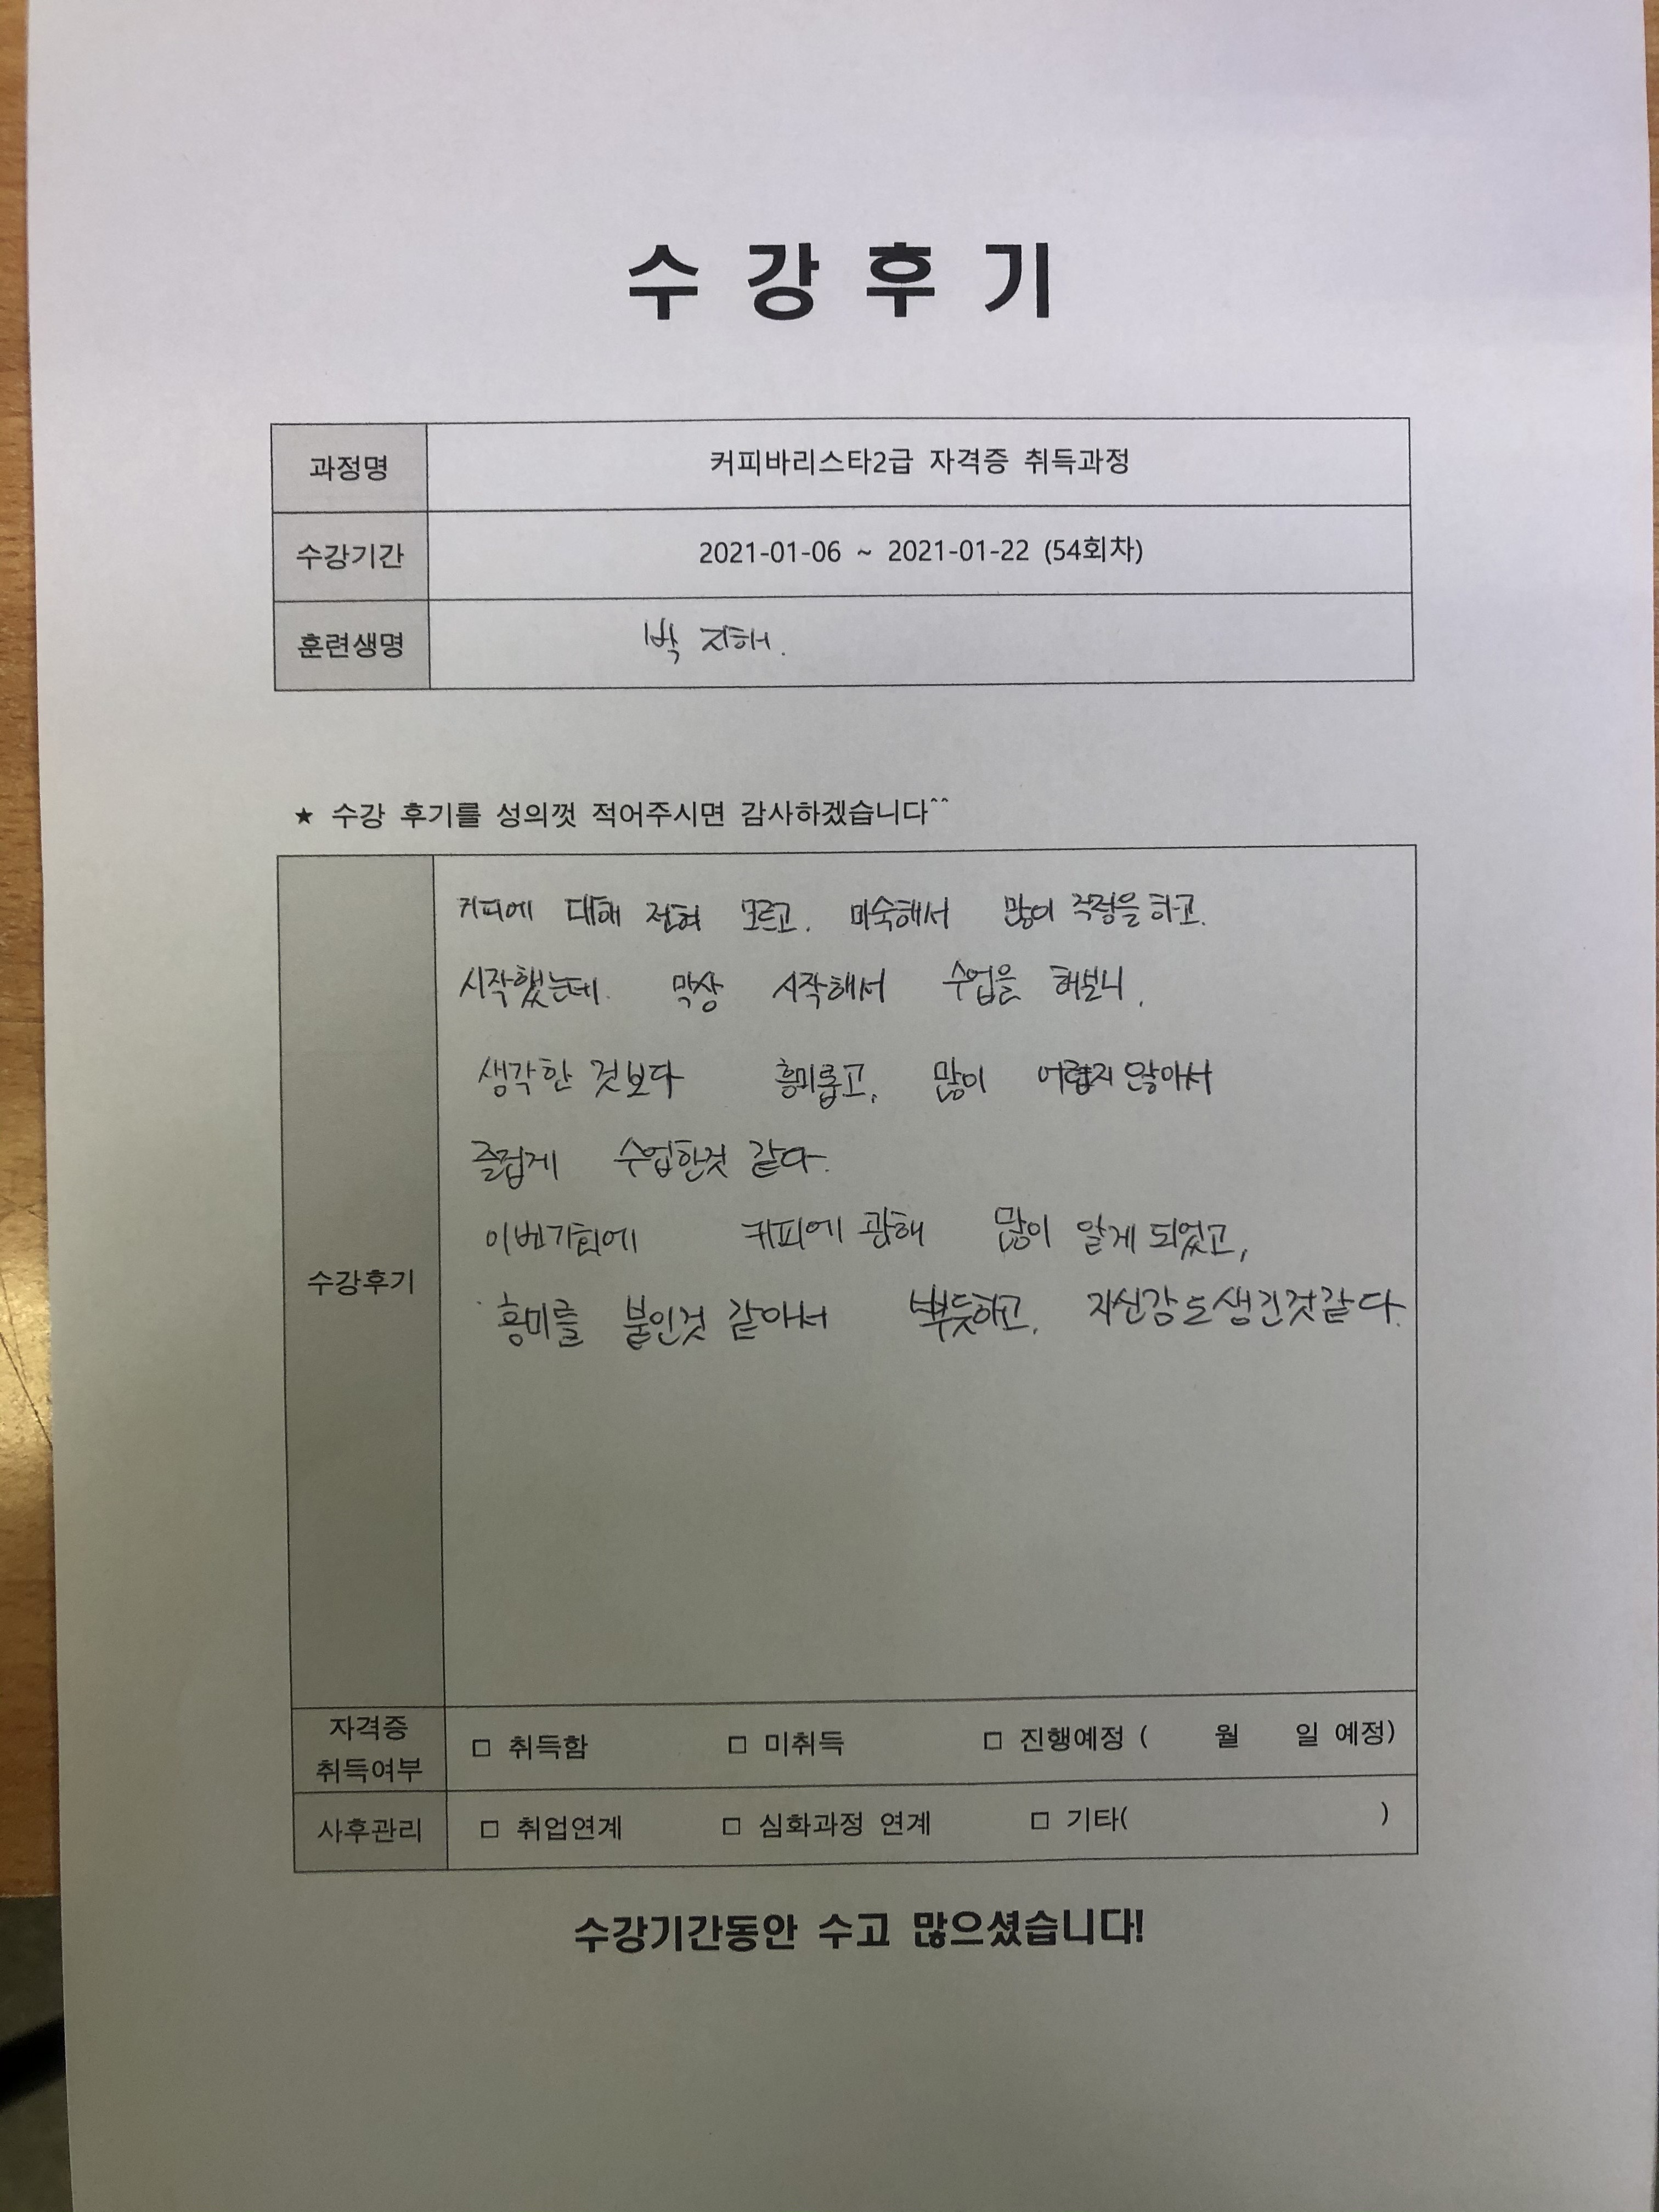 수강후기
과정명 커피바리스타2급 자격증 취득과정
수강기간 2021-01-06 ~ 2021-01-22 (54회차)
훈련생명 박지해.
★ 수강 후기를 성의껏 적어주시면 감사하겠습니다^^
커피에 대해 전혀 모르고. 미숙해서 많이 걱정을 하고.
시작했는데. 막상 시작해서 수업을 해보니,
생각한 것보다 흥미롭고, 많이 어렵지 않아서
즐겁게 수업한것 같다.
이번기회에 커피에 관해 많이 알게 되었고,
수강후기
흥미를 붙인것 같아서 뿌듯하고, 자신감도생긴것같다.
자격증
취득여부
□ 취득함 □ 미취득 □ 진행예정 ( 월 일 예정)
사후관리 □ 취업연계 □ 심화과정 연계 □ 기타( )
수강기간동안 수고 많으셨습니다!